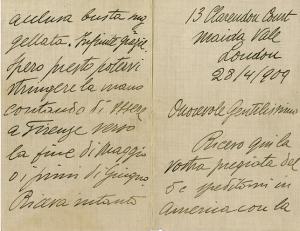 13 Clarendon Court
Maida Vale
London
28/4/909
Onorevole Gentilissimo
Ricevo qui la
vostra pregiata del
5 c speditami in
America con la
acclusa busta sug
gellata. Infinite grazie.
Spero presto potervi
stringere la mano
contando di essere
a Firenze verso
la fine di Maggio
o i primi di Giugno
Riceva intanto